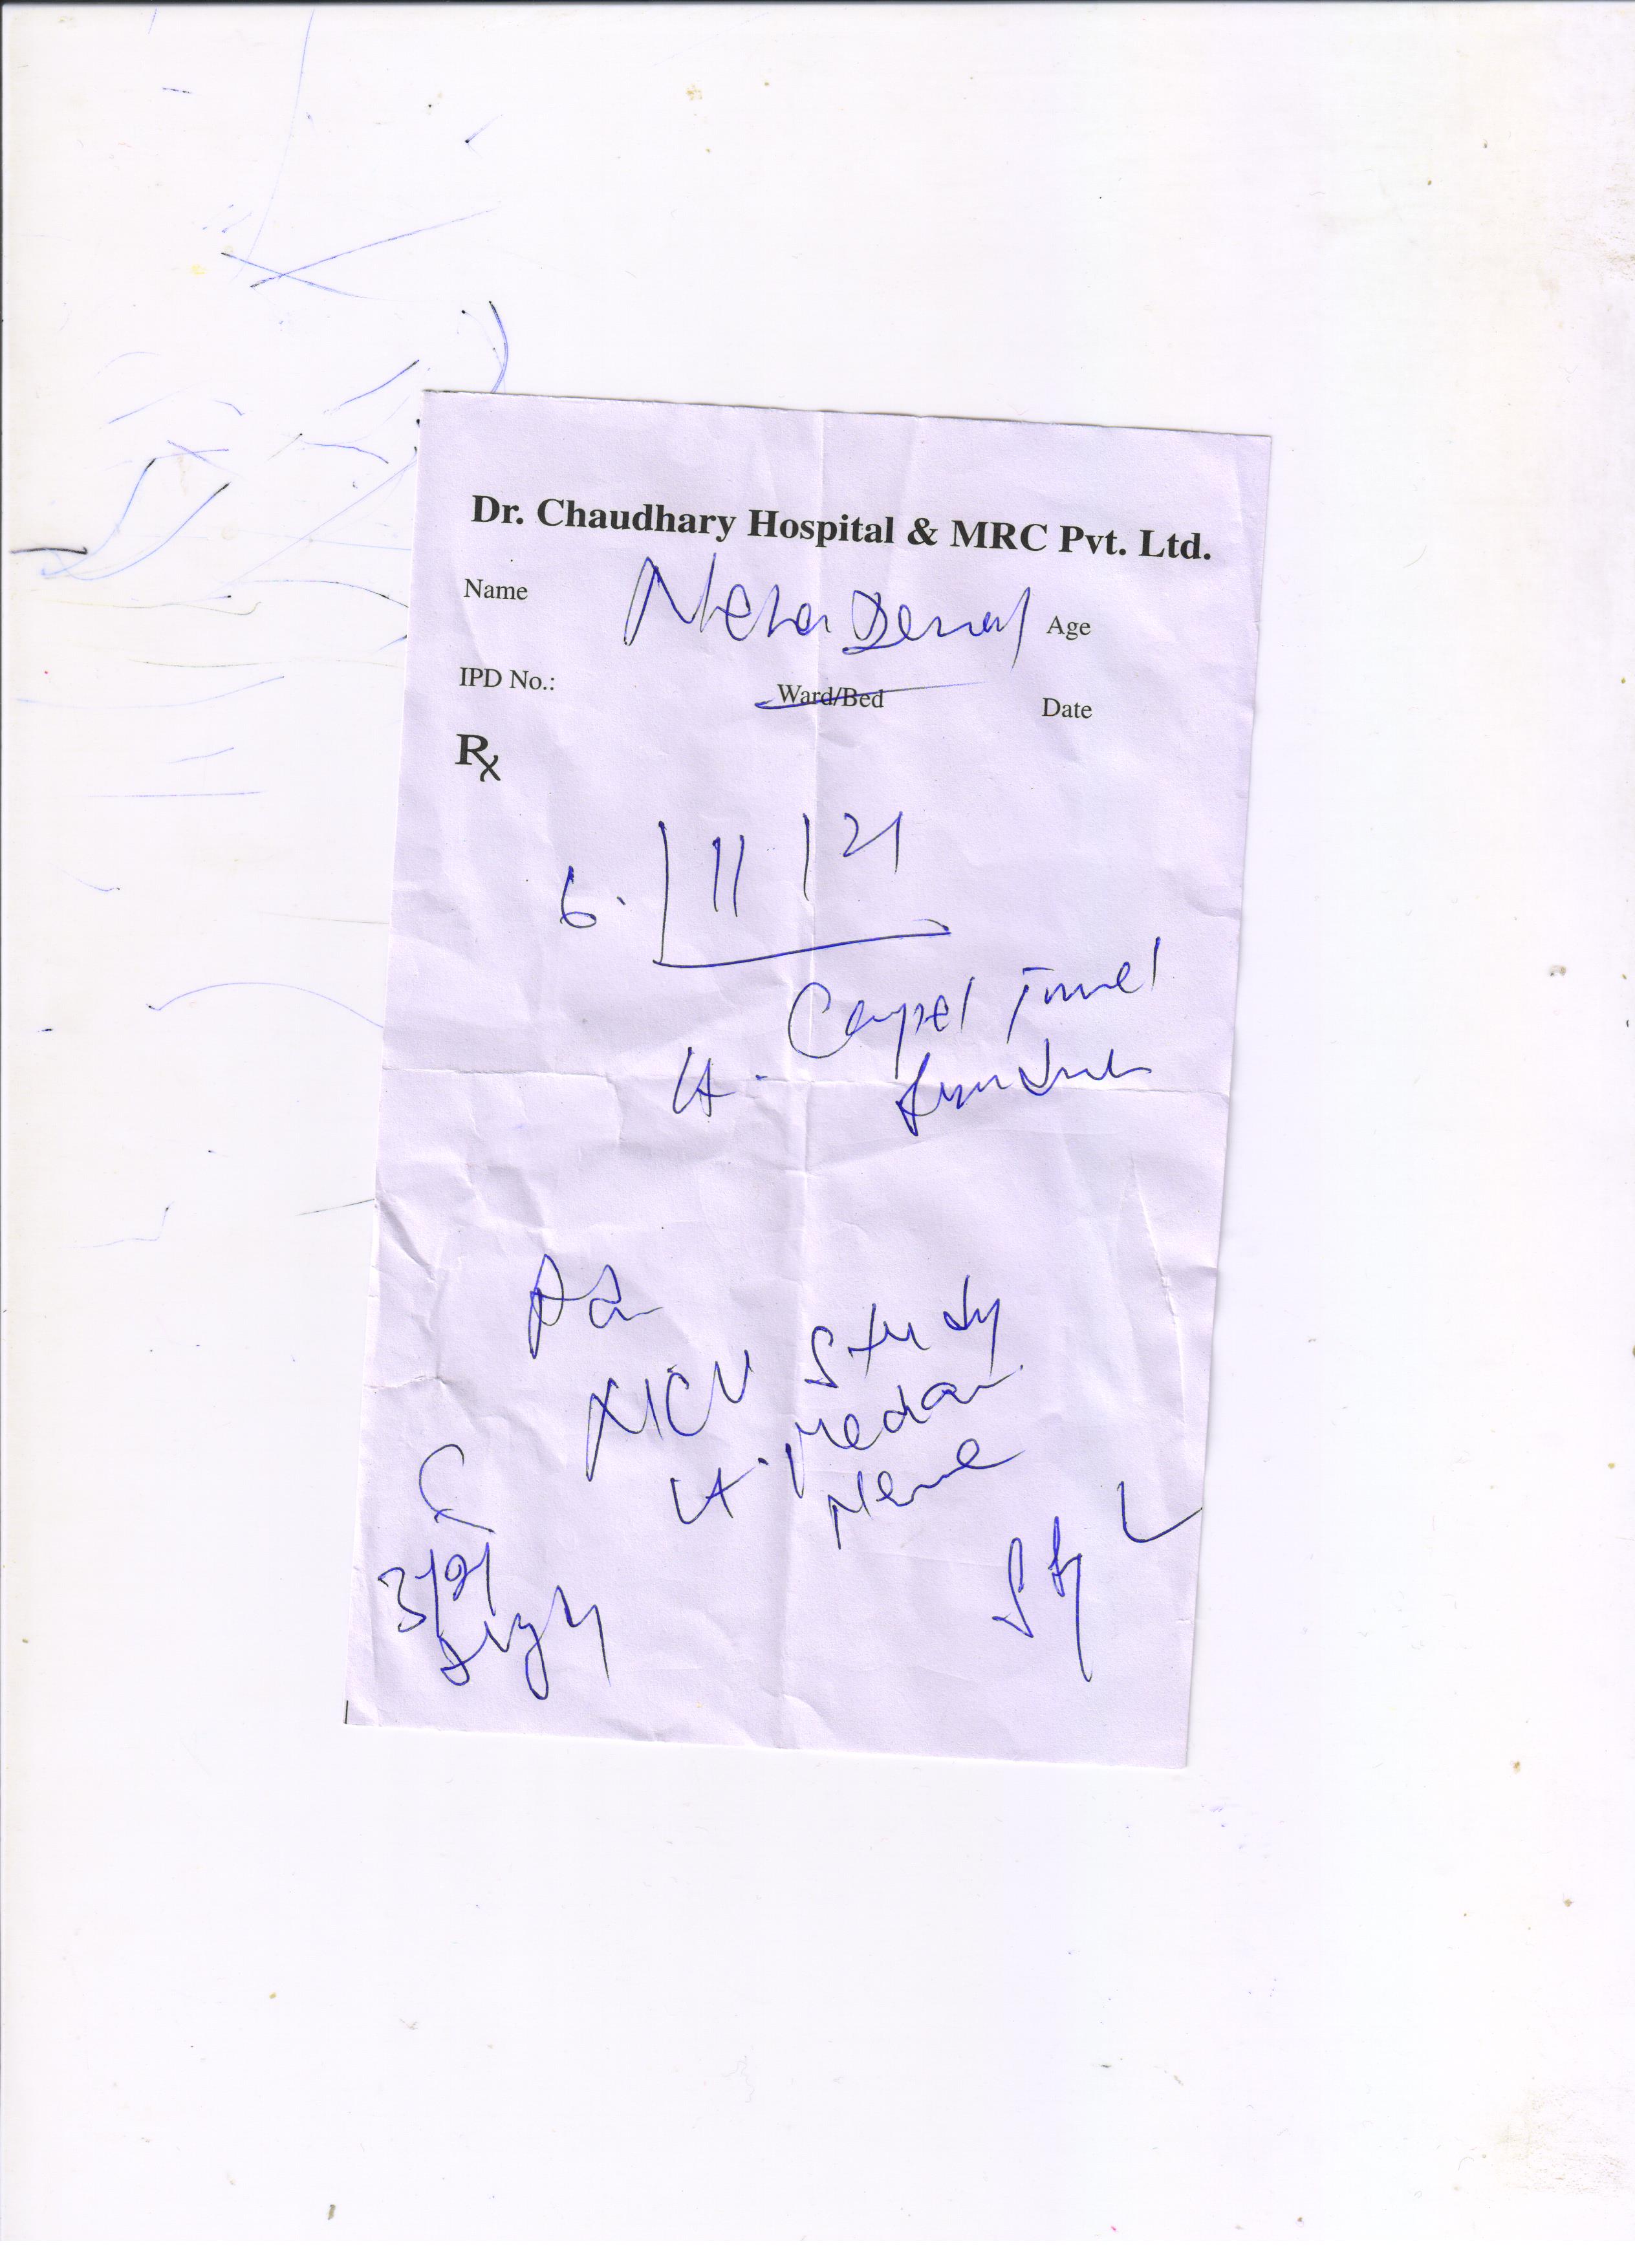 Dr. Chaudhary Hospital & MRC Pvt. Ltd.
Name Neha Age
IPD No.: Ward/Bed Date
Rx
6. 11 21
Carpel Tunnel
Lt. Syndrome
NCV Study
Lt. Median
Nerve